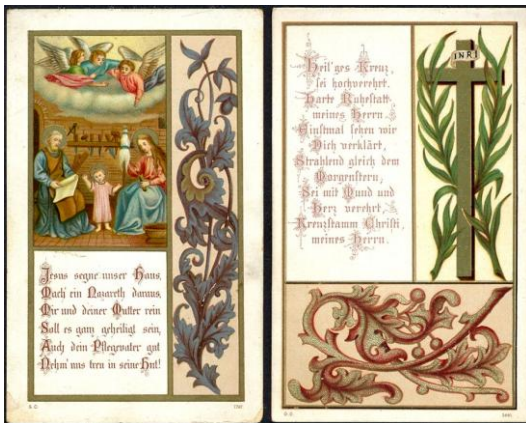 Jesus segne unser Haus,
Mach ein Nazareth daraus,
Dir und deiner Mutter rein
Soll es ganz geheiligt sein,
Auch dein Pflegevater gut
Nehm' uns treu in seine Hut!
INRI
Heil'ges Kreuz,
sei hochverehrt,
Harte Ruhestatt
meines Herrn.
Einstmal sehen wir
Dich verklärt,
Strahlend gleich dem
Morgenstern;
Sei mit Mund und
Herz verehrt,
Kreuzstamm Christi,
meines Herrn.